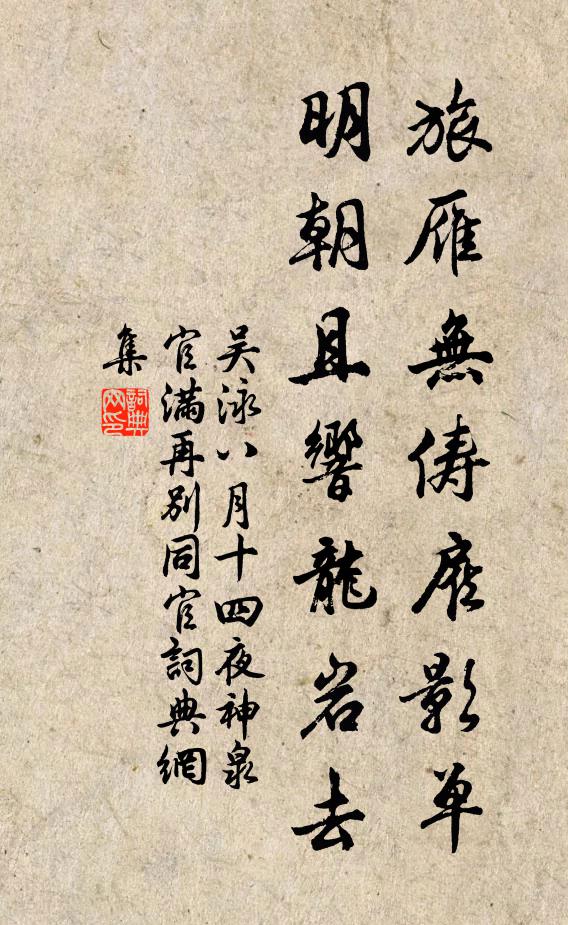 旅雁無儔廄影單
明朝且響龍岩去
吴泳八月十四夜神泉
官滿再别同官詞典網
集
詞典網印